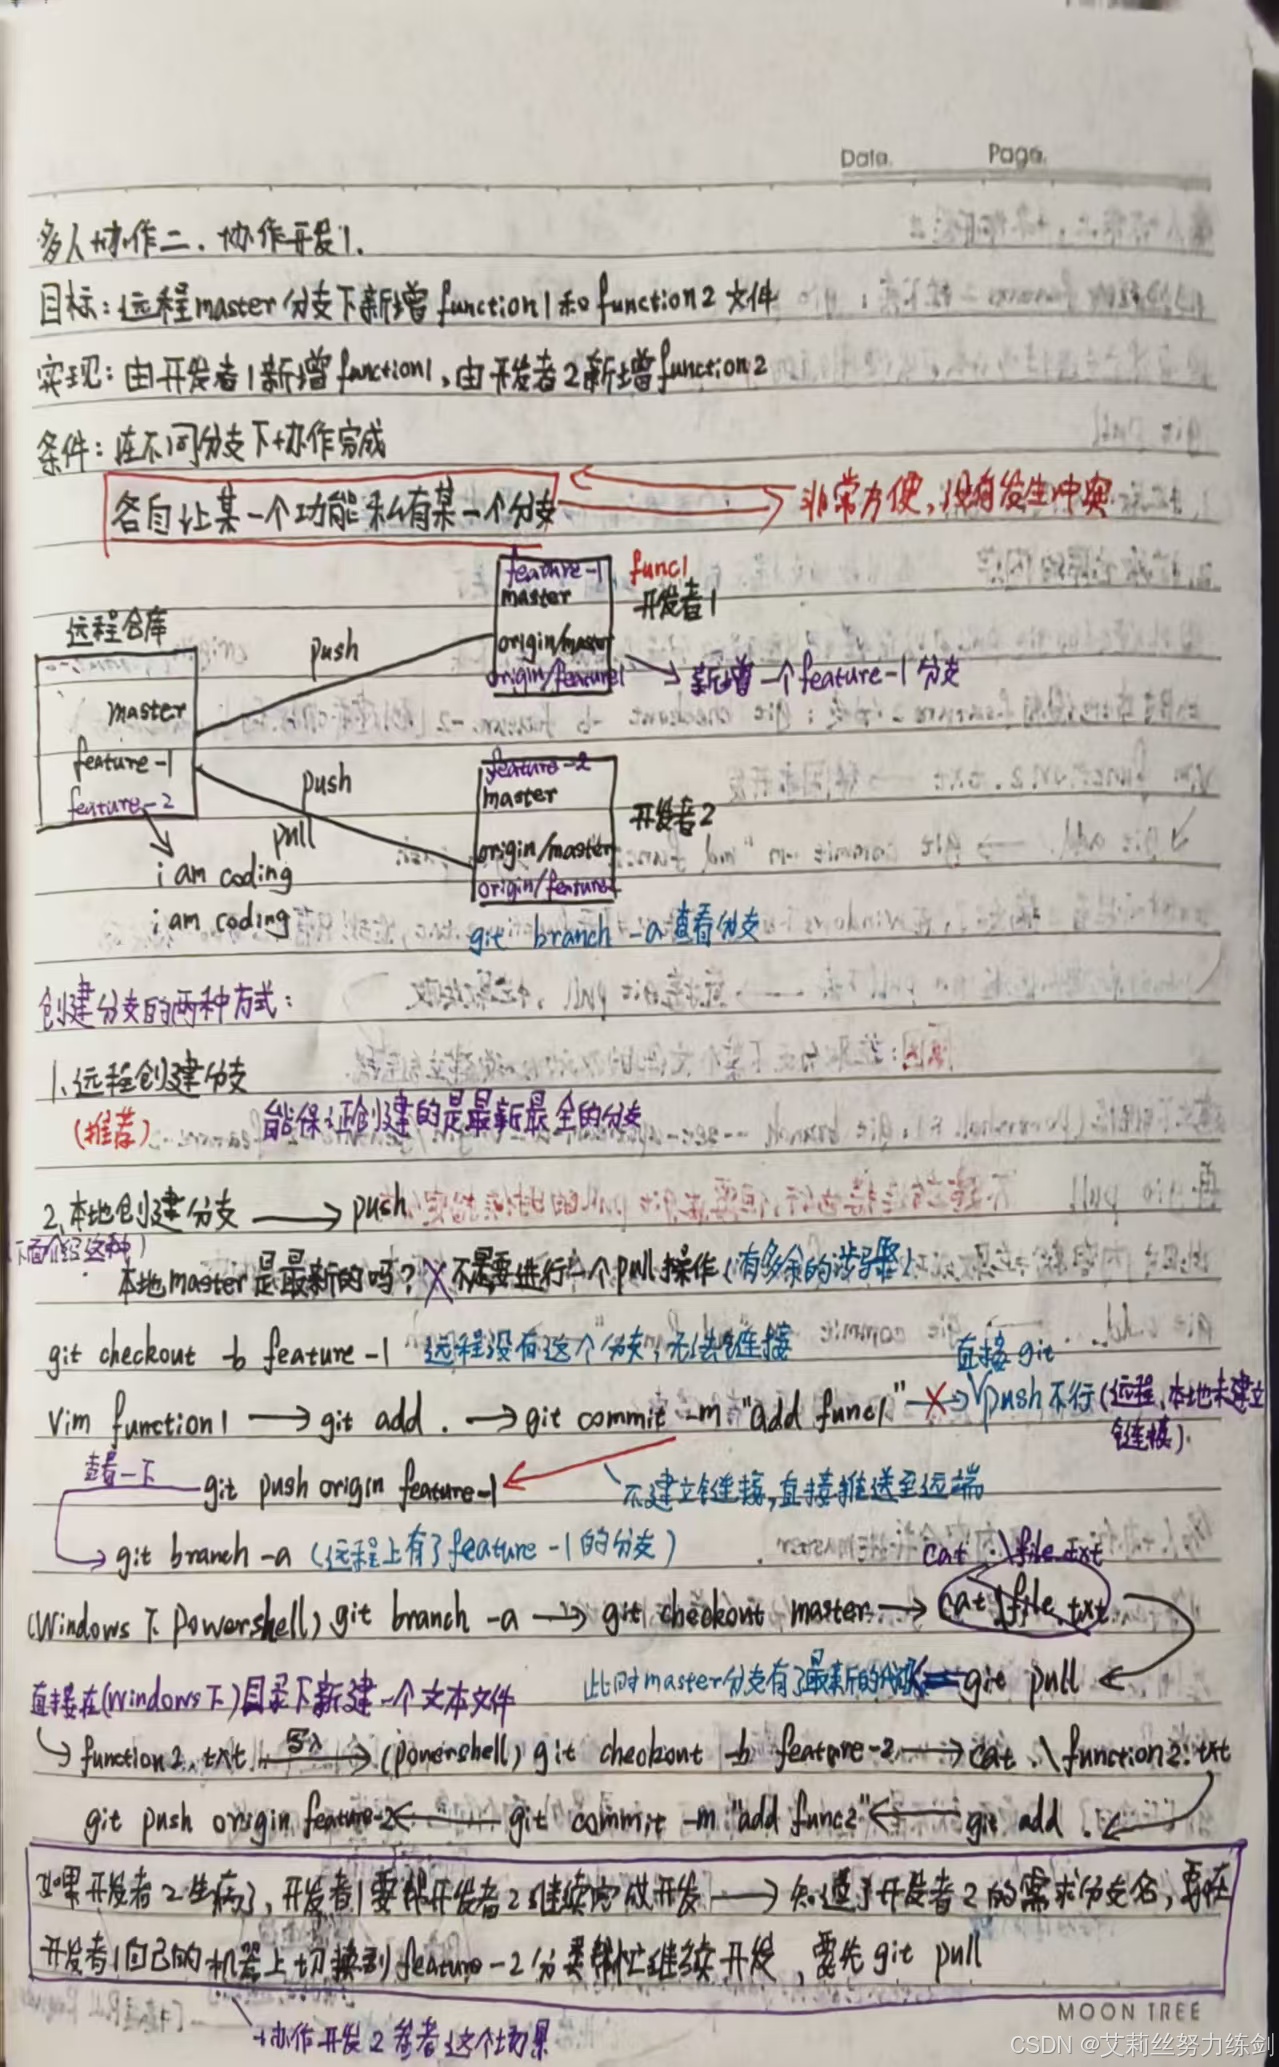 Data. Page.
多人协作二、协作开发1.
目标：远程master分支下新增function1和function2文件
实现：由开发者1新增function1,由开发者2新增function2
条件：在不同分支下协作完成
各自让某一个功能私有某一个分支
非常方便,没有发生冲突
feature-1
func1
master
开发者1
远程仓库
push
origin/master
origin/feature1
新增一个feature-1分支
master
feature-1
feature-2
push
pull
feature-2
master
开发者2
origin/master
i am coding
origin/feature
i am coding
git branch -a 查看分支
创建分支的两种方式：
1、远程创建分支
(推荐) 能保证创建的是最新最全的分支
2、本地创建分支 → push
下面介绍这种)
本地master是最新的吗? 不是要进行一个pull操作(有多余的步骤)
git checkout -b feature-1 远程没有这个分支,无法链接
直接git
vim function1 → git add . → git commit -m "add func1" → push不行(远程、本地未建立
链接).
查看一下
git push origin feature-1 不建立链接,直接推送至远端
git branch -a (远程上有了feature-1的分支)
cat .\file.txt
(Windows下Powershell) git branch -a → git checkout master → cat .\file.txt
此时master分支有了最新的代码 ← git pull
直接在(Windows下)目录下新建一个文本文件
function2.txt 写入 → (powershell) git checkout -b feature-2 → cat .\function2.txt
git push origin feature-2 ← git commit -m "add func2" ← git add .
如果开发者2生病了,开发者1要帮开发者2继续完成开发 → 知道了开发者2的需求分支名,要在
开发者1自己的机器上切换到feature-2分支帮忙继续开发,要先git pull
MOON TREE
协作开发2参考这个场景
CSDN @艾莉丝努力练剑